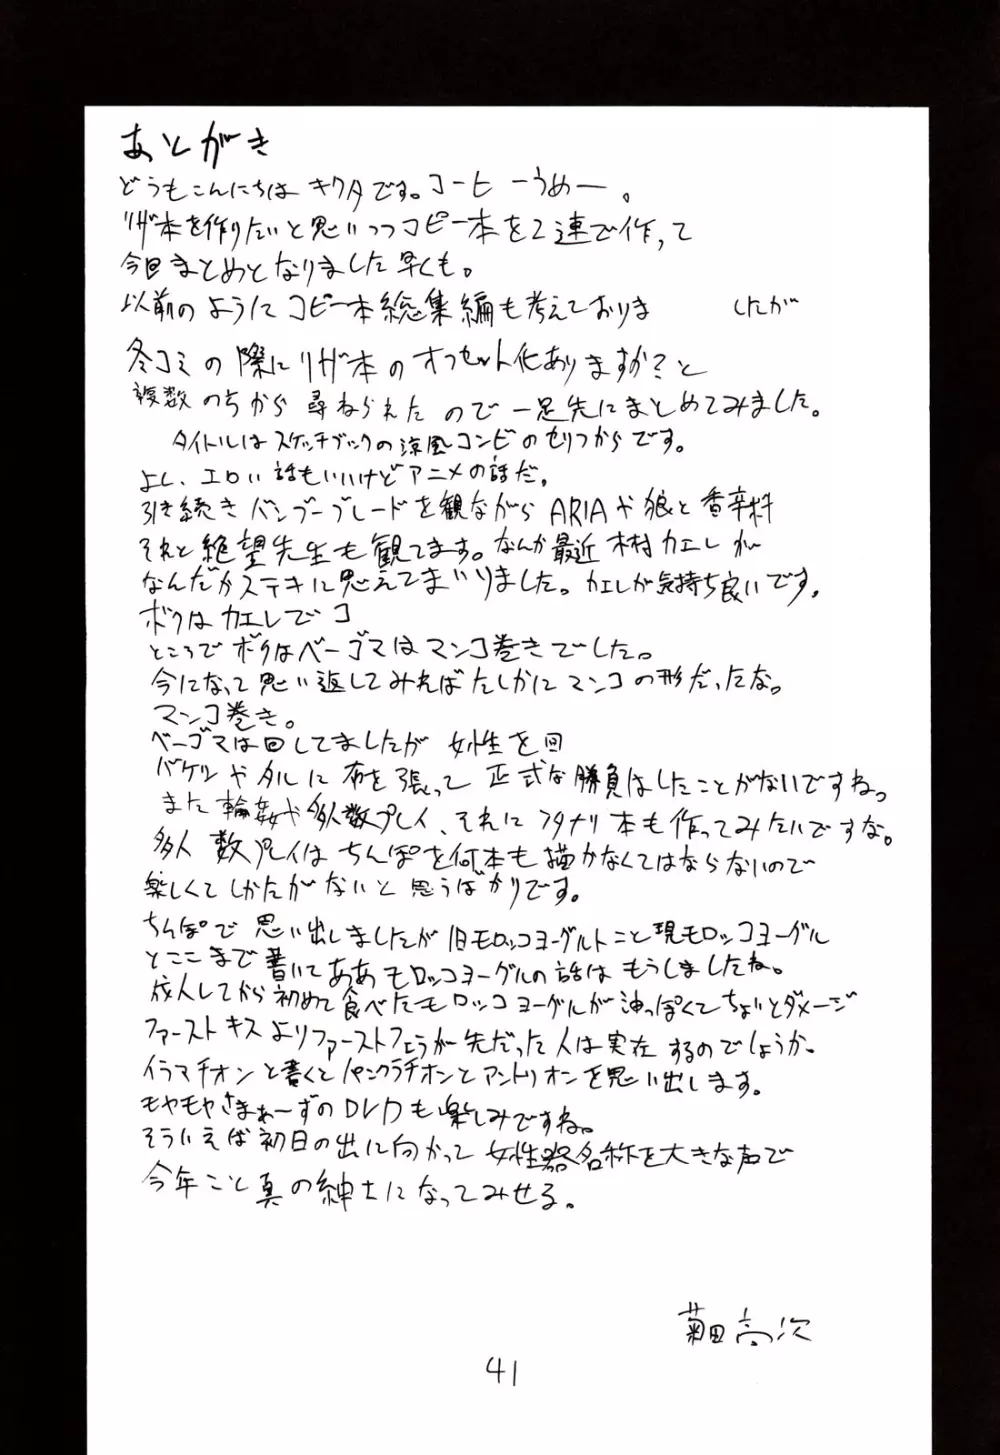 あとがき
どうもこんにちは キクタです。コーヒーうめー。
リザ本を作りたいと思いつつコピー本を2連で作って
今回まとめとなりました早くも。
以前のようにコピー本総集編も考えておりま したが
冬コミの際にリザ本のオフセット化ありますか?と
複数のちから尋ねられたので一足先にまとめてみました。
タイトルはスケッチブックの涼風コンビのセリフからです。
よし、エロい話もいいけどアニメの話だ。
引き続きバンブーブレードを観ながらARIAや狼と香辛料
それと絶望先生も観てます。なんか最近木村カエレが
なんだかステキに思えてまいりました。カエレが気持ち良いです。
ボクはカエレでコ
ところでボクはベーゴマはマンコ巻きでした。
今になって思い返してみればたしかにマンコの形だったな。
マンコ巻き。
ベーゴマは回してましたが 女性を回
バケツやタルに布を張って 正式な勝負はしたことがないですね。
また輪姦や多人数プレイ、それにフタナリ本も作ってみたいですな。
多人数プレイはちんぽを何本も描かなくてはならないので
楽しくてしかたがないと思うばかりです。
ちんぽで思い出しましたが旧モロッコヨーグルトこと現モロッコヨーグル
とここまで書いてああモロッコヨーグルの話はもうしましたね。
成人してから初めて食べたモロッコヨーグルが油っぽくてちょいとダメージ
ファーストキスよりファーストフェラが先だった人は実在するのでしょうか。
イラマチオンと書くとパンクラチオンとアントリオンを思い出します。
モヤモヤさまぁ〜ずのDVDも楽しみですね。
そういえば初日の出に向かって女性器名称を大きな声で
今年こそ真の紳士になってみせる。
菊田高次
41